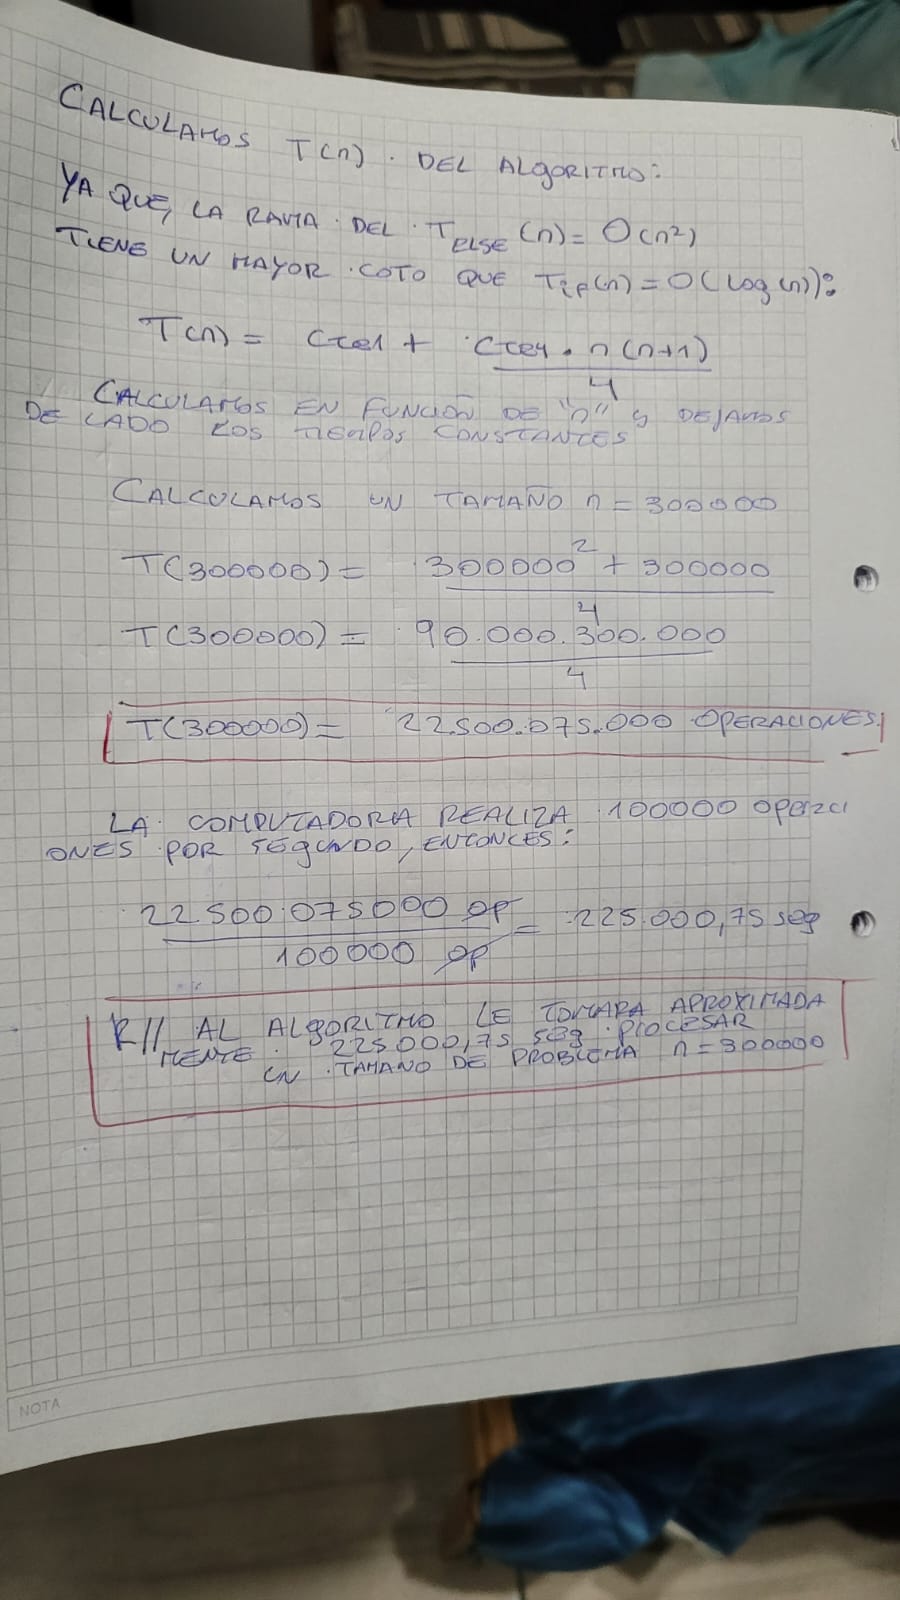 CALCULAMOS T(n). DEL ALGORITMO:
YA QUE, LA RAMA DEL T_ELSE(n)= O(n²)
TIENE UN MAYOR COTO QUE T_if(n)=O(Log(n)):
T(n)= Cte1 + Cte4 . n(n+1)
4
CALCULAMOS EN FUNCIÓN DE "n" y DEJAMOS
DE LADO LOS TIEMPOS CONSTANTES
CALCULAMOS UN TAMAÑO n=300000
T(300000)= 300000² + 300000
4
T(300000)= 90.000.300.000
4
T(300000)= 22.500.075.000 OPERACIONES
LA COMPUTADORA REALIZA 100000 operaci
ONES POR SEGUNDO, ENTONCES:
22.500.075000 op = 225.000,75 seg
100000 op
R// AL ALGORITMO LE TOMARA APROXIMADA
MENTE 225000,75 seg PROCESAR
UN TAMAÑO DE PROBLEMA n=300000
NOTA